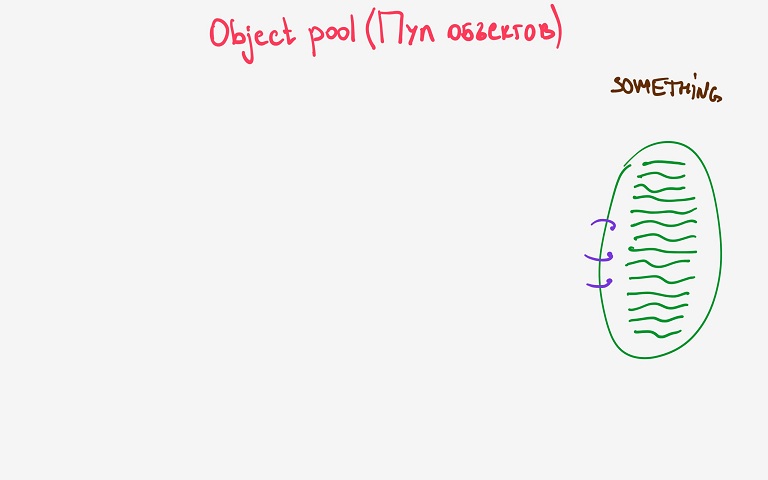 Object pool (Пул объектов)
SOMETHING